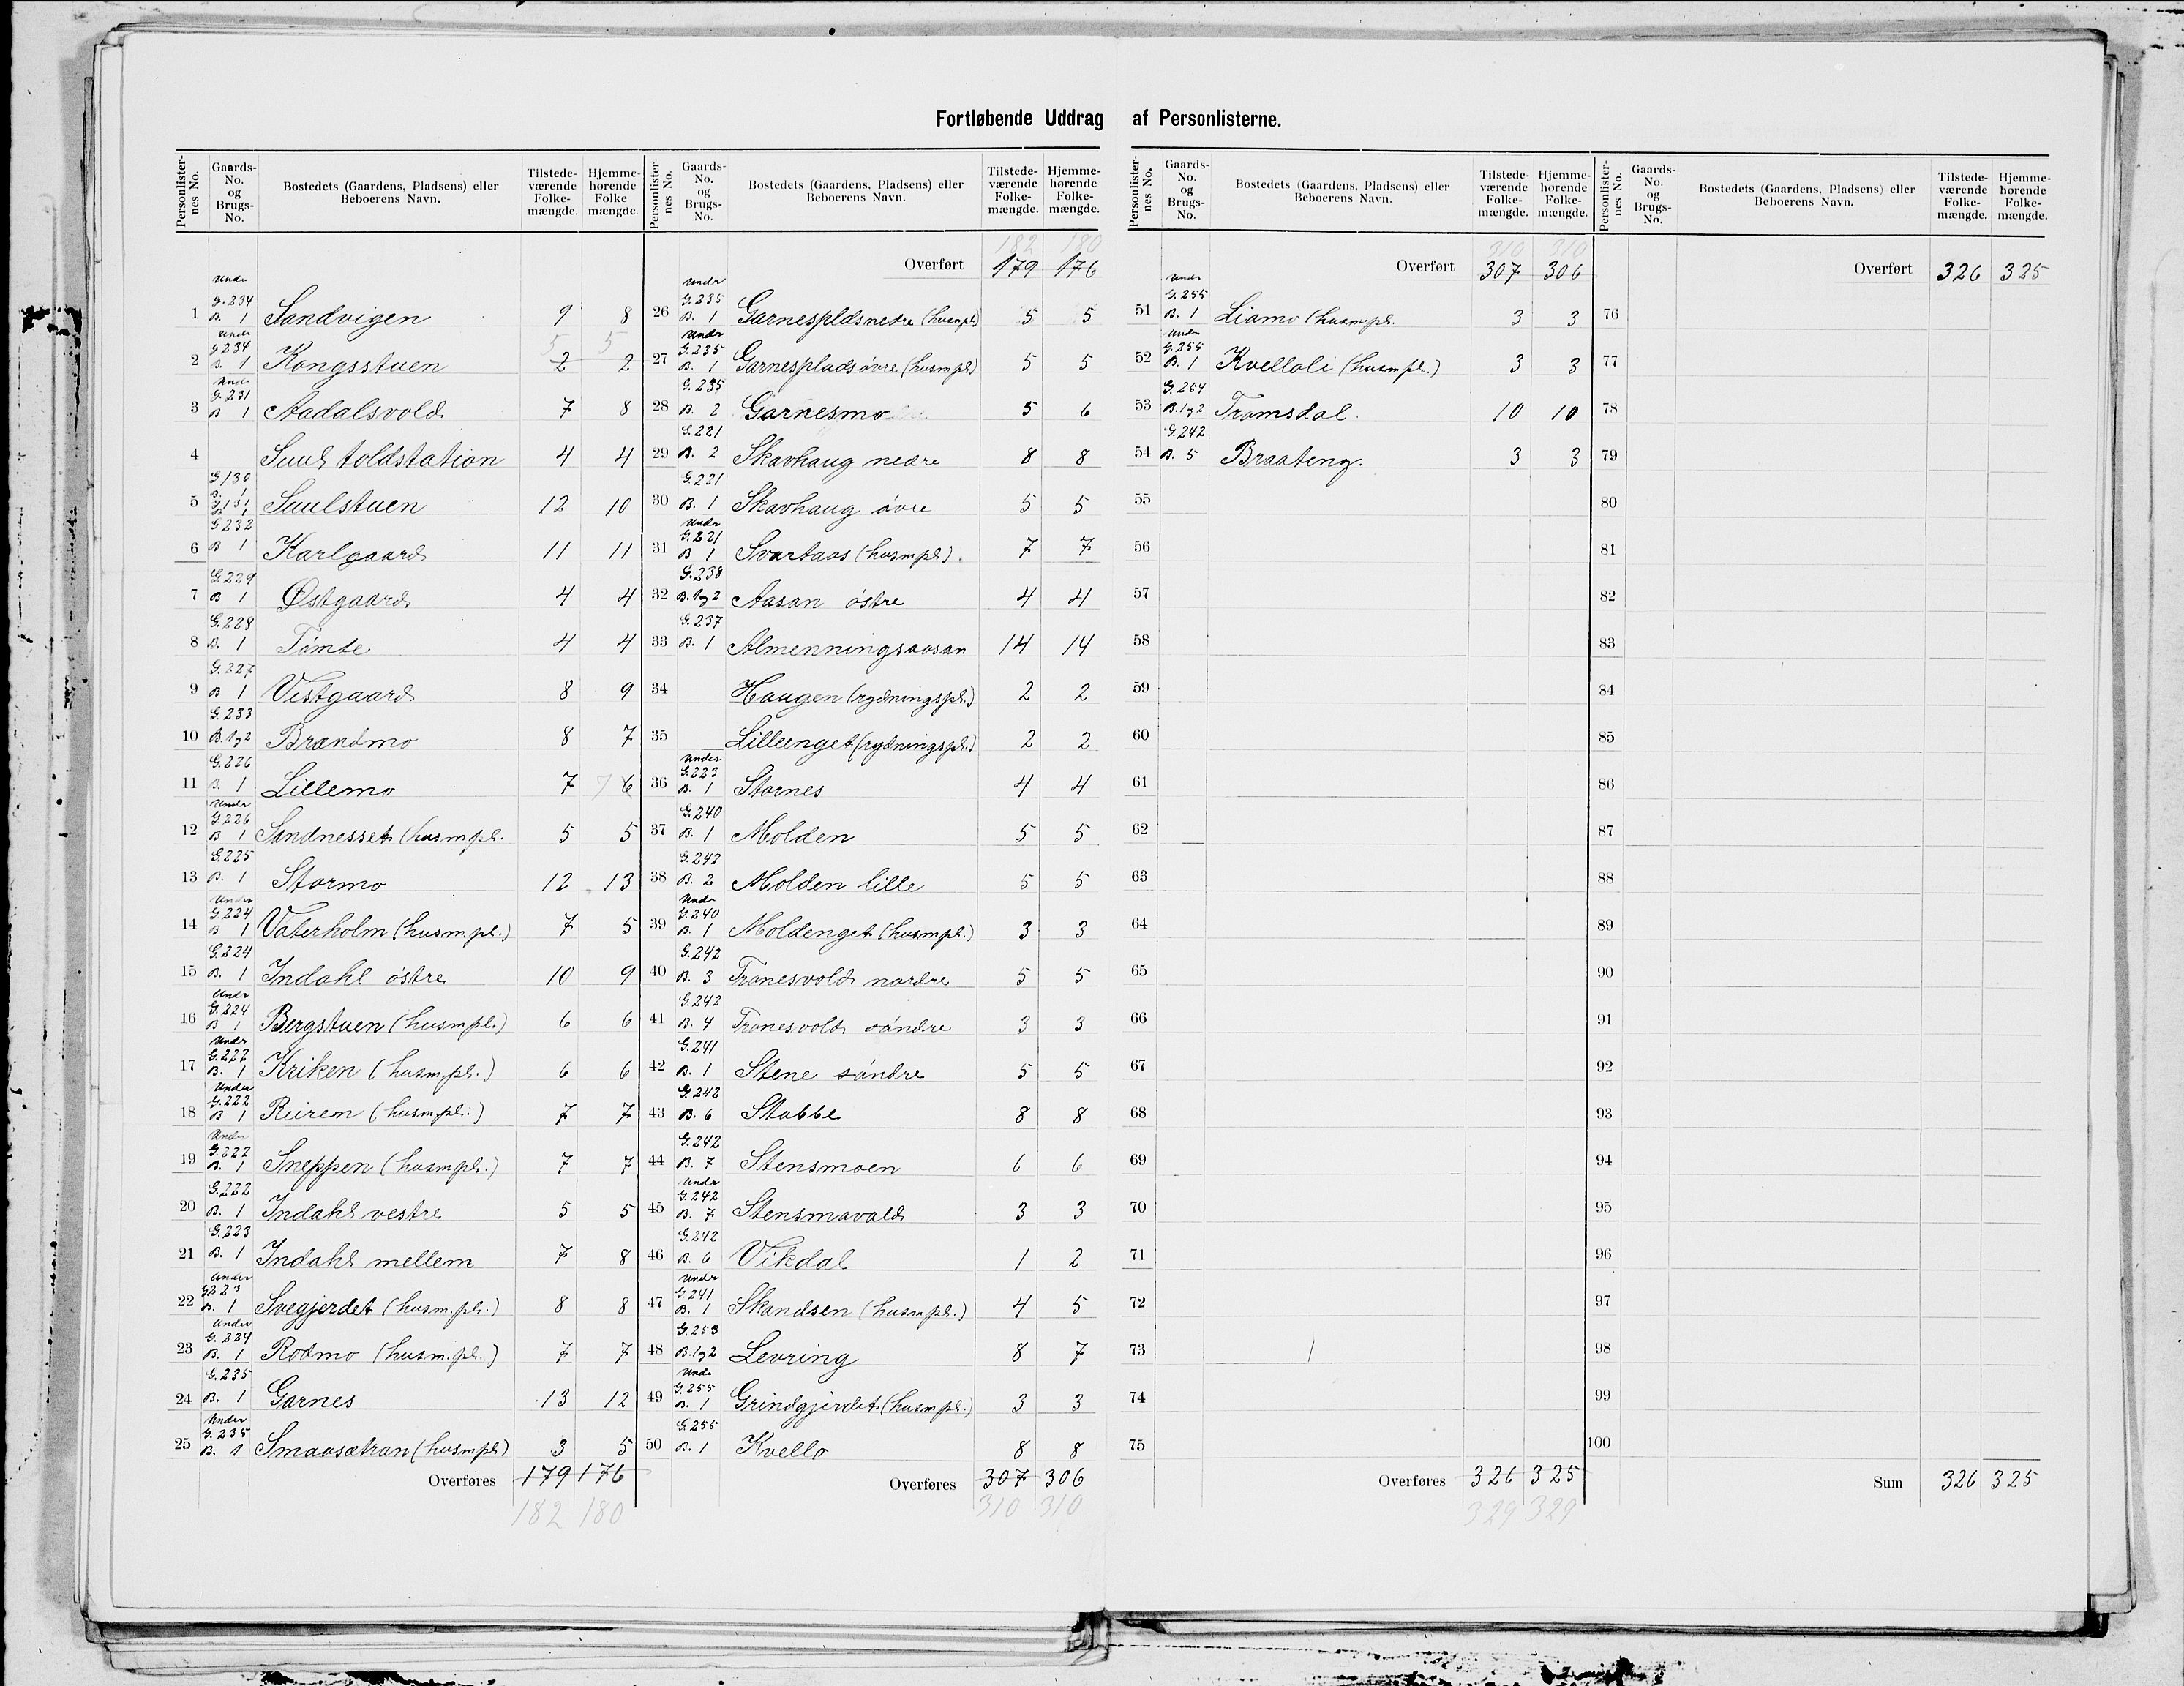 Fortløbende Uddrag af Personlisterne.
Personlister-nes No. Gaards-No. og Brugs-No. Bostedets (Gaardens, Pladsens) eller Beboerens Navn. Tilstede-værende Folke-mængde. Hjemme-hørende Folke mængde.
1 Under G. 234 B. 1 Sandvigen 9 8
2 Under G 234 B. 1 Kongsstuen 2 2 5 5
3 Und. G. 231 B 1 Aadalsvold 7 8
4 Suul toldstation 4 4
5 G 130 B. 1 G 131 B 1 Suulstuen 12 10
6 G 232 B 1 Karlgaard 11 11
7 G 229 B 1 Østgaard 4 4
8 G. 228 B. 1 Tømte 4 4
9 G. 227 B 1 Vestgaard 8 9
10 G. 233 B. 1 og 2 Brændmo 8 7
11 G. 226 B. 1 Lillemo 7 7 6
12 Under G. 226 B 1 Sandnesset (husm.pl. 5 5
13 G. 225 B. 1 Stormo 12 13
14 Under G. 224 B 1 Vaterholm (husm.pl.) 7 5
15 G. 224 B. 1 Indahl östre 10 9
16 Undr G. 224 B 1 Bergstuen (husmpl.) 6 6
17 Undr G. 222 B. 1 Kriken (husm.pl.) 6 6
18 Under G. 222 B 1 Reirem (husm.pl.) 7 7
19 Under G. 222 B. 1 Sneppen (husmpl.) 7 7
20 G. 222 B. 1 Indahl vestre 5 5
21 G. 223 B. 1 Indahl mellem 7 8
22 Under G 223 B. 1 Svegjerdet (husm.pl.) 8 8
23 Under G. 234 B. 1 Rodmo (husm.pl.) 7 7
24 G. 235 B. 1 Garnes 13 12
25 Under G. 235 B. 1 Smaasætran (husmpl) 3 5
Overføres 179 176
182 180
Personlister-nes No. Gaards-No. og Brugs-No. Bostedets (Gaardens, Pladsens) eller Beboerens Navn. Tilstede-værende Folke-mængde. Hjemme-hørende Folke-mængde.
182 180
Overført 179 176
26 Undr G. 235 B. 1 Garnesplds nedre (husmpl) 5 5
27 Under G. 235 B. 1 Garnesplads øvre (husmpl) 5 5
28 G. 235 B. 2 Garnesmo 5 6
29 G. 221 B. 2 Skavhaug nedre 8 8
30 G. 221 B. 1 Skavhaug øvre 5 5
31 Under G. 221 B 1 Svartaas (husmpl.) 7 7
32 G. 238 B. 1 og 2 Aasan östre 4 4
33 G. 237 B. 1 Almenningsaasan 14 14
34 Haugen (rydningspl.) 2 2
35 Lilleenget (rydningspl.) 2 2
36 Under G. 223 B. 1 Stornes 4 4
37 G. 240 B. 1 Molden 5 5
38 G. 242 B. 2 Molden lille 5 5
39 Undr G. 240 B. 1 Moldenget (husmpl.) 3 3
40 G. 242 B. 3 Tronesvold nordre 5 5
41 G. 242 B. 4 Tronesvold söndre 3 3
42 G. 241 B. 1 Stene söndre 5 5
43 G. 242 B. 6 Stubbe 8 8
44 G. 242 B. 7 Stensmoen 6 6
45 Under G. 242 B. 7 Stensmovald 3 3
46 G. 242 B. 6 Vikdal 1 2
47 Under G. 241 B. 1 Skandsen (husmpl.) 4 5
48 G. 253 B. 1 og 2 Levring 8 7
49 Under G. 255 B. 1 Grindgjerdet (husmpl.) 3 3
50 G. 255 B. 1 Kvello 8 8
Overføres 307 306
310 310
Personlister-nes No. Gaards-No. og Brugs-No. Bostedets (Gaardens, Pladsens) eller Beboerens Navn. Tilstede-værende Folke-mængde. Hjemme-hørende Folke-mængde.
310 310
Overført 307 306
51 Under G. 255 B. 1 Liamo (husmpl. 3 3
52 Under G. 255 B. 1 Kvelloli (husmpl.) 3 3
53 G. 254 B. 1 og 2 Tromsdal. 10 10
54 G. 242 B. 5 Braateng. 3 3
55
56
57
58
59
60
61
62
63
64
65
66
67
68
69
70
71
72
73
74
75
Overføres 326 325
329 329
Personlister-nes No. Gaards-No. og Brugs-No. Bostedets (Gaardens, Pladsens) eller Beboerens Navn. Tilstede-værende Folke-mængde. Hjemme-hørende Folke-mængde.
Overført 326 325
76
77
78
79
80
81
82
83
84
85
86
87
88
89
90
91
92
93
94
95
96
97
98
99
100
Sum 326 325